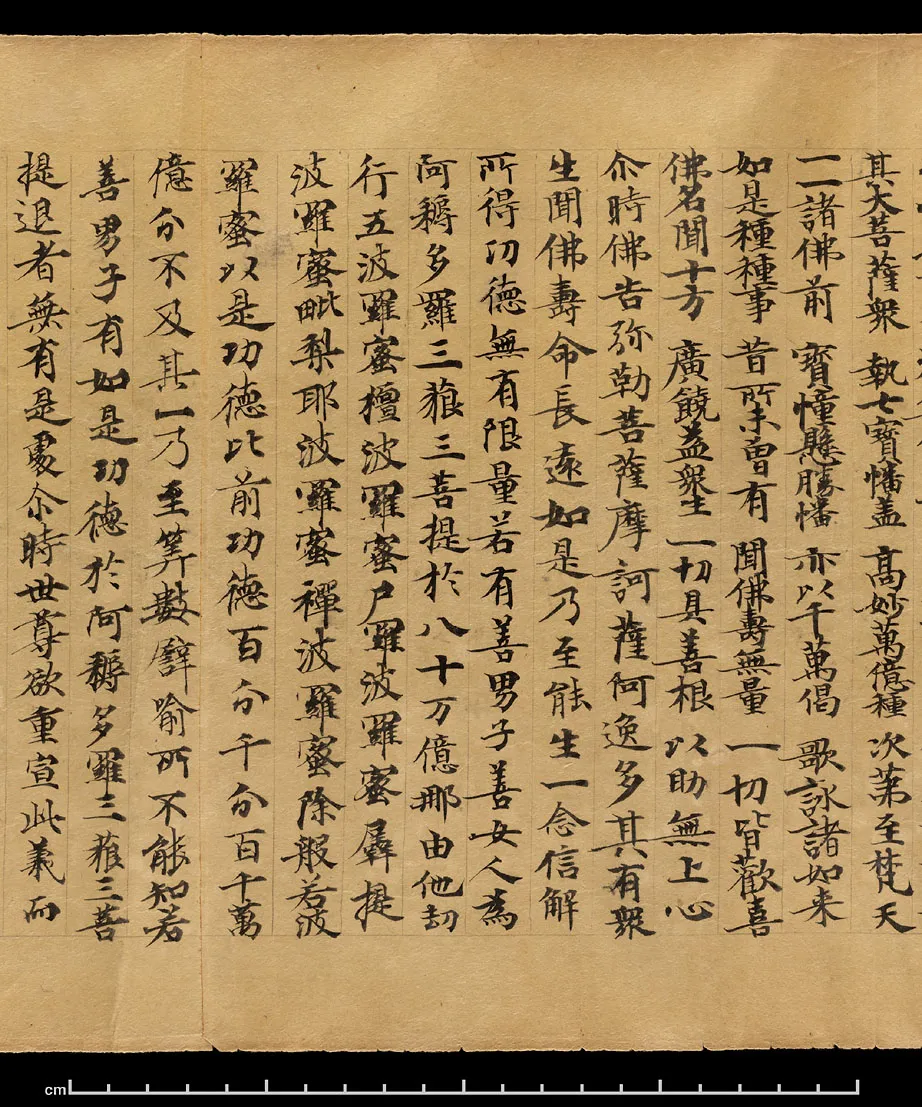 其大菩薩衆 執七寶幡盖 高妙萬億種 次苐至梵天
一一諸佛前 寶幢懸勝幡 亦以千萬偈 歌詠諸如来
如是種種事 昔所未曽有 聞佛壽無量 一切皆歡喜
佛名聞十方 廣饒益衆生 一切具善根 以助無上心
尒時佛告弥勒菩薩摩訶薩阿逸多其有衆
生聞佛壽命長遠如是乃至能生一念信解
所得功德無有限量若有善男子善女人為
阿耨多羅三藐三菩提於八十万億那由他劫
行五波羅蜜檀波羅蜜尸羅波羅蜜羼提
波羅蜜毗梨耶波羅蜜禪波羅蜜除般若波
羅蜜以是功德比前功德百分千分百千萬
億分不及其一乃至筭數譬喻所不能知若
善男子有如是功德於阿耨多羅三藐三菩
提退者無有是處尒時世尊欲重宣此義而
cm